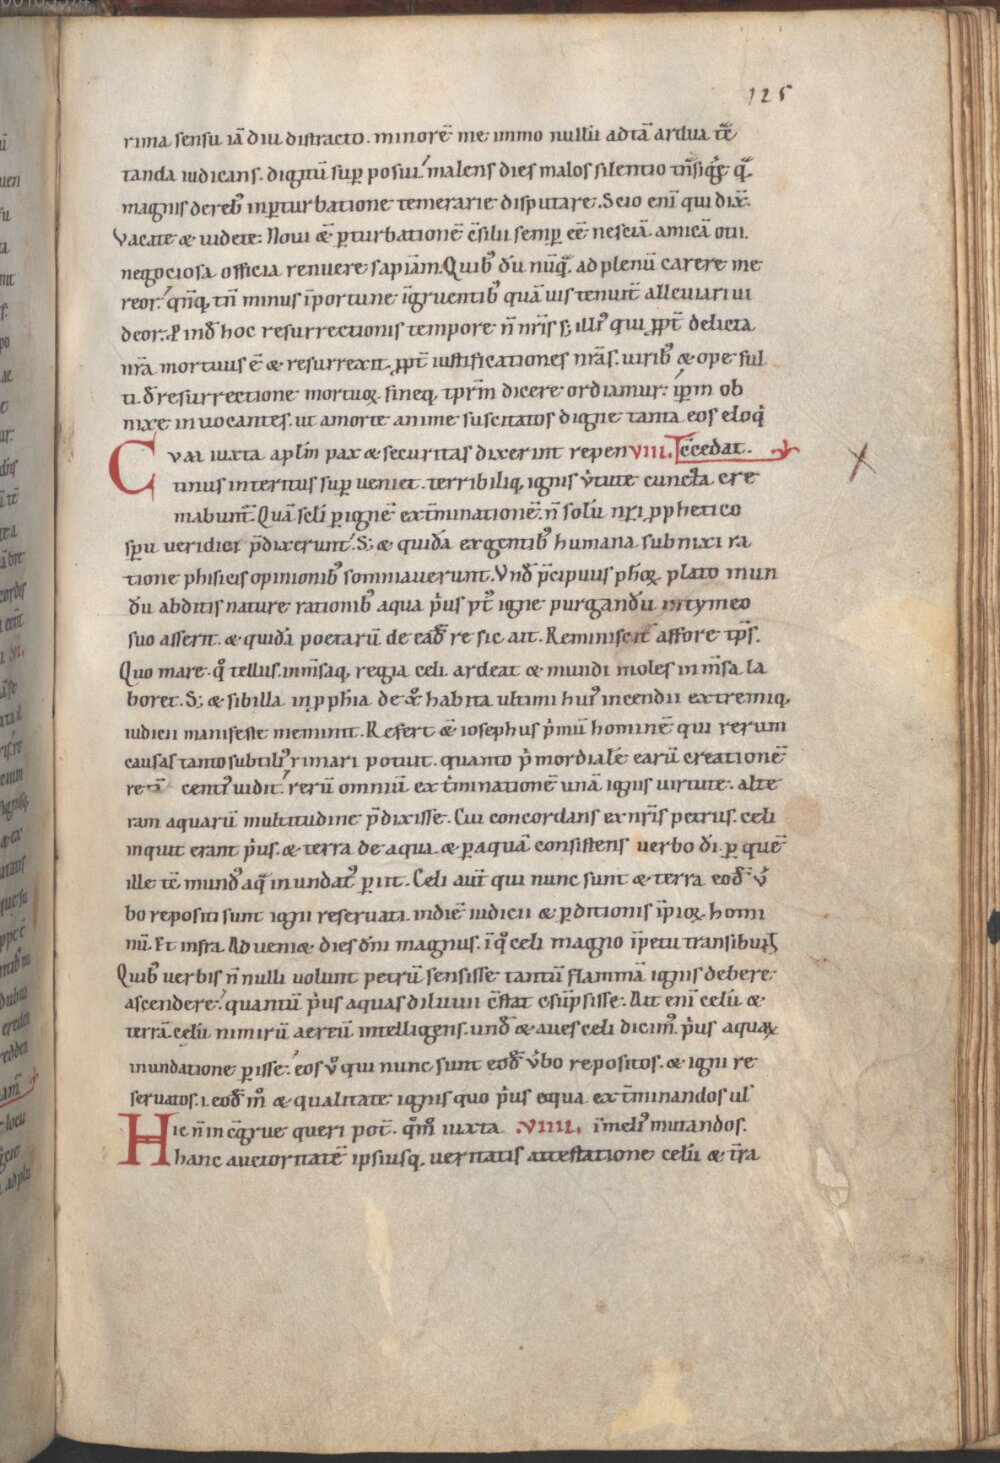 125
rima sensu iā diu distracto. minorē me immo nullū ad tā ardua tē
tanda iudicans. dignū sup posui malens dies malos silentio
magnis de reb; in pturbatione temerarie disputare. Scio enī qui dix̄.
Vacate & uidete. Noui & pturbationē c̄silii semp eē nesciā. amicā otii.
negociosa officia renuere sapiā. Quib; dū nūq̄ ad plenū carere me
reor. tn̄ minus īportune īgruentib; quā uis tenuit alleuiari ui
deor. & ind hoc resurrectionis tempore n̄ nr̄is s; illi; qui ppt̄ delicta
nr̄a mortuus ē & resurrexit ppt̄ iustificationes nr̄as. uirib; & ope ful
ti d̄ resurrectione mortuoꝝ fineq; tp̄rm dicere ordiamur. ip̄m ob
nixe inuocantes. ut a morte anime suscitatos digne tanta eos eloq
Cvm iuxta aplm̄ pax & securitas dixerint repen VIII. c̄cedat.
tinus interitus sup ueniet. terribiliq; ignis v̄tute cuncta cre
mabunt̄. Quā scl̄i p ignē ext̄minationē. n̄ solū nr̄i pphetico
sp̄u ueridici p̄dixerunt. S; & quidā ex gentib; humana subnixi ra
tione phisicis opinionib; somniauerunt. Vnd p̄cipuus ph̄oꝝ plato mun
dū abditis nature rationib; aqua p̄us pt̄ igne purgandū in tymeo
suo asserit. & quidā poetarū de eād re sic ait. Reminiscit̄ affore tp̄s.
Quo mare. q̊ tellus. inm̄saq; regia celi ardeat & mundi moles inm̄sa la
boret. S; & sibilla in pphīa de xp̄o habita ultimi hui; incendii extremiq;
iudicii manifeste meminit. Refert & iosephus p̄mū hominē qui rerum
causas tanto subtili; rimari potuit. quanto p̄mordialē earū creationē
re centi; uidit. rerū omniū ext̄minationē unā ignis uirtute. alte
ram aquarū multitudine p̄dixisse. Cui concordans ex nr̄is petrus. celi
inquit erant p̄us. & terra de aqua & p aquā consistens uerbo dī. p quē
ille tē mund; aq̄ inundat; p iit. Celi aut̄ qui nunc sunt & terra eod v̄
bo repositi sunt igni reseruati in diē iudicii & pditionis īpioꝝ homi
nū. Et infra. Adueni& dies dn̄i magnus. ī q̊ celi magno īpetu transibunt
Quib; uerbis n̄ nulli uolunt petrū sensisse tantū flammā ignis debere
ascendere. quantū p̄us aquas diluuii c̄stat c̄sūpsisse. Ait enī celū &
terrā. celū nimirū aereū intelligens. und & aues celi dicim;. p̄us aquaꝝ
inundatione p isse. eos v̊ qui nunc sunt eod v̄bo repositos. & igni re
seruatos. i. eod m̊ & qualitate ignis quo p̄us aqua ext̄minandos ul
Hic n̄ inc̄grue queri pot̄. q̊m̊ iuxta VIIII. ī meli; mutandos.
hanc auctoritatē ipsiusq; ueritatis attestatione celū & t̄ra